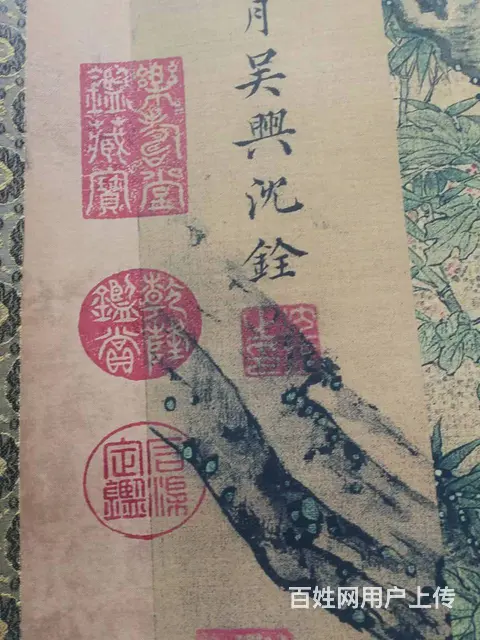 月吳興沈銓
樂壽堂
鑑藏寶
乾隆
鑑賞
石渠
定鑑
百姓网用户上传